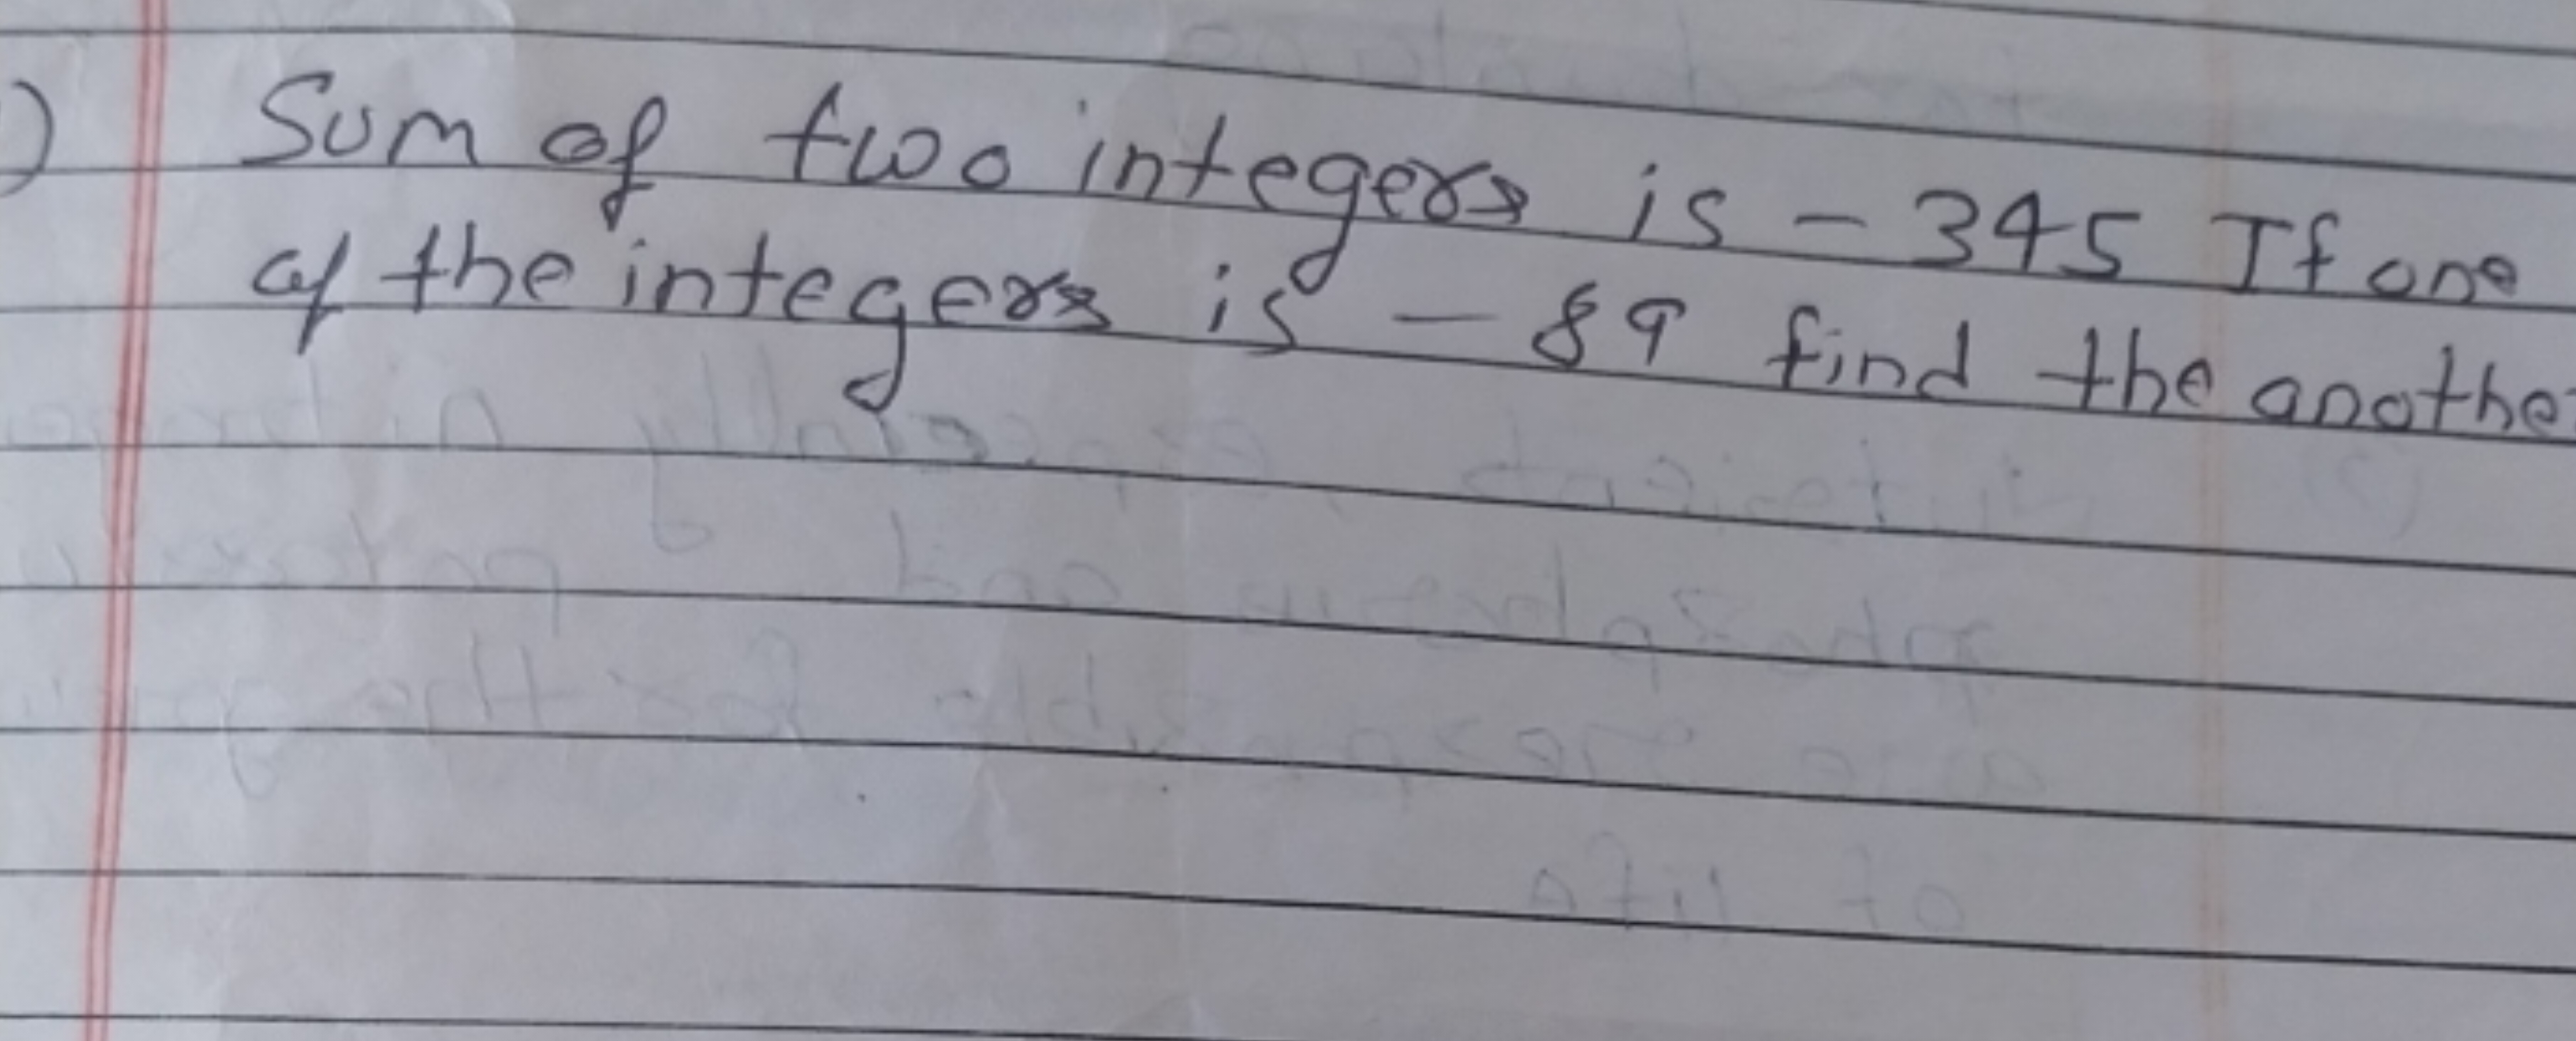 ) Sum of two integers is - 345 If one
of the integers is - 89 find the anothe